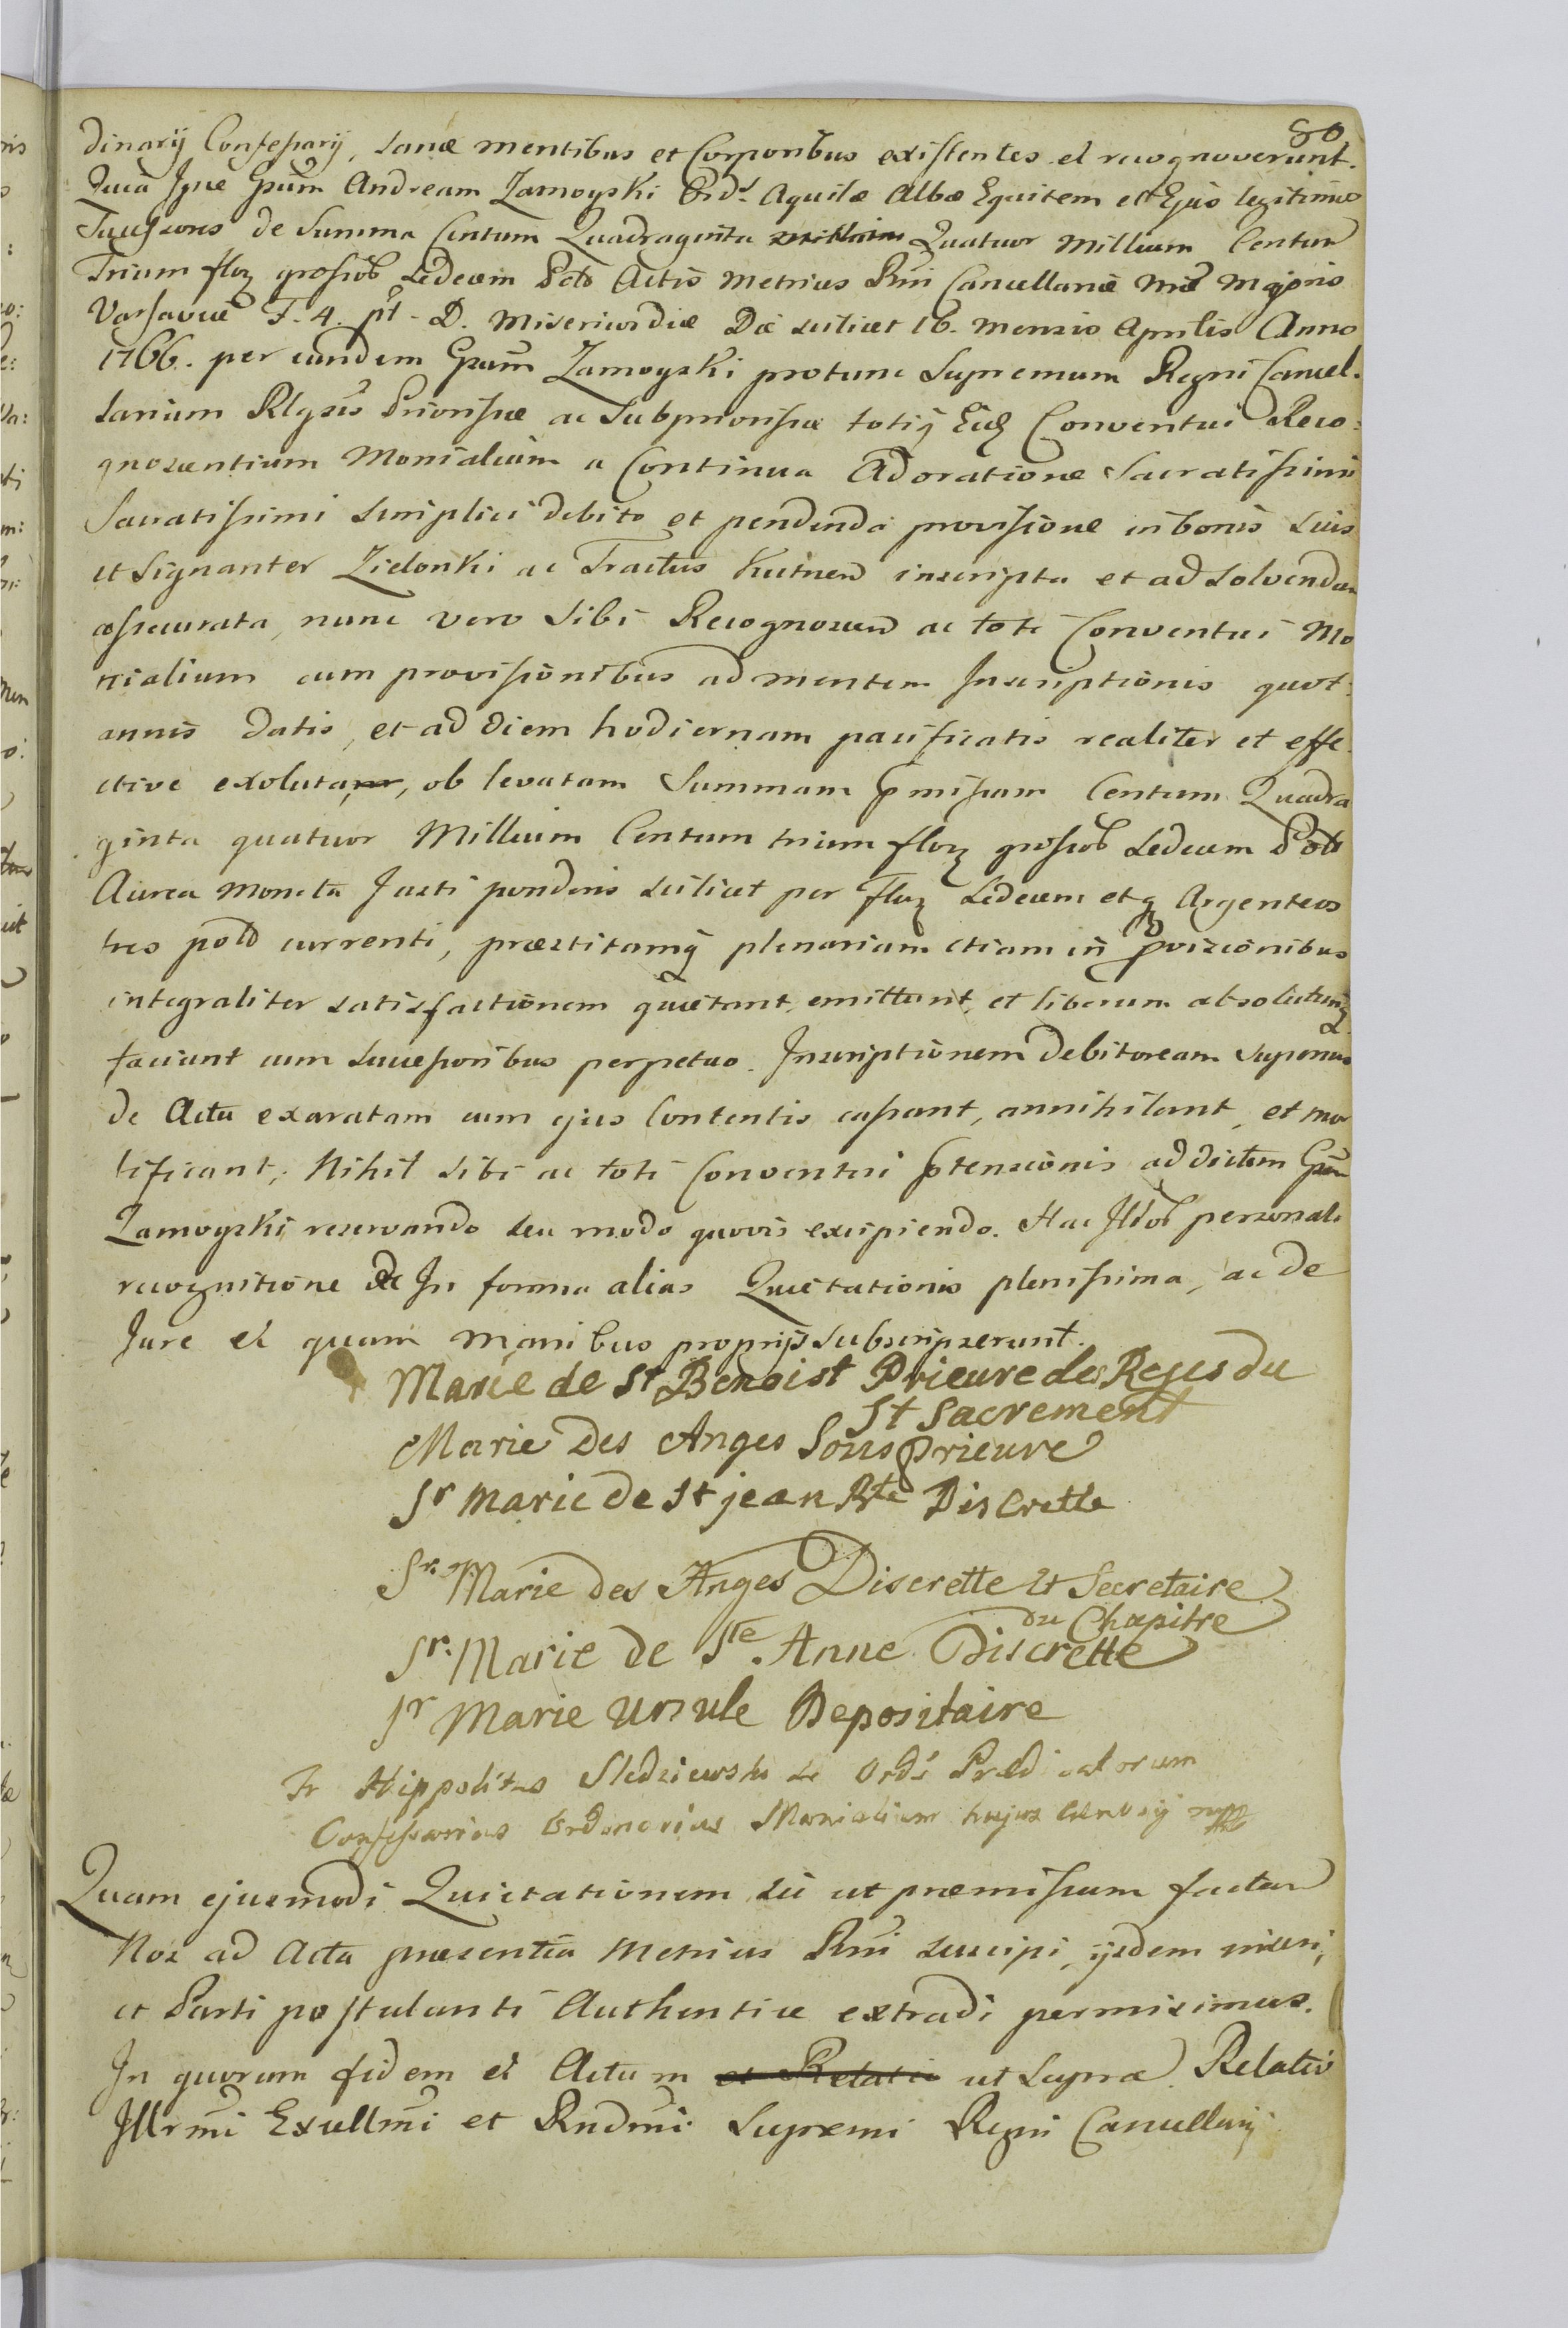 80
dinarij Confessarij, sanæ mentibus et Corporibus existentes et recognoverunt.
Quia Ipse Gsum Andream Zamoyski Ord. Aquilæ Albæ Equitem et Ejus legitimos
Successores de Summa Centum Quadraginta Quatuor Millium Centum
Trium flor grossib Sedecim Polo Actis Metrices Rni Cancellariæ Mris Mgioris
Varsaviæ F. 4. pt D. Misericordiæ Dae scilicet 16. mensis Aprilis Anno
1766. per eundem Gsum Zamoyski protunc Supremum Regni Cancel-
larium Rlgsis Priorissæ ac Subpriorissæ totiq Eid Conventui Reco:
gnoscentium Monialium a Continua Adoratione Sacratissimi
Sacratissimi simplici debito et pendenda provisione in bonis suis
et Signanter Zielonki ac Tractus Kutnen inscripta et ad solvendam
assecurata, nunc vero sibi Recognoscen ac toti Conventui Mo
nialium cum provisionibus ad mentem Inscriptionis quot:
annis datis, et ad diem hodiernam pacificatis realiter et effe:
ctive exoluta, ob levatam Summam pmissam Centum Quadra
ginta quatuor Millium Centum trium flor grossib Sedecim Polo
Aurea Moneta Justi ponderis scilicet per Flor Sedecim et g Argenteos
tres pold currenti, præstitamq plenariam etiam in provisionibus
integraliter satisfactionem quietant, emittunt, et liberum absolutumq
faciunt cum successoribus perpetuo. Inscriptionem debitoream superius
de Actu exaratam cum ejus Contentis cassant, annihilant, et mor
tificant, Nihil sibi ac toti Conventui ptensionis ad dictum Gsum
Zamoyski reservando seu modo quovis excipiendo. Hac Ildob personali
recognitione &c In forma alias Quietationis plenissima, ac de
Jure et quam Manibus proprijs subscripserunt.
Marie de St Benoist Prieure des Rejes du
St Sacrement
Marie Des Anges Sousprieure
Sr Marie de St jean Bte Discrette
Sr. Marie des Anges Discrette et Secretaire
du Chapitre
Sr. Marie de Ste. Anne Discrette
Sr Marie Ursule Depositaire
Fr Hippolitus Sledziewski Ords Prædicatorum
Confessarius Ordinarius Monialium hujus mpp
Quam ejusmodi Quietationem sic ut præmissum factam
Nos ad Acta præsentia Metrices Rni suscipi, ijsdem inseri,
et Parti postulanti Authentice extradi permisimus.
In quorum fidem et Actum et Relatio ut supra. Relatio
Illrmi Excellmi et Rndmi Supremi Regni Cancellarij